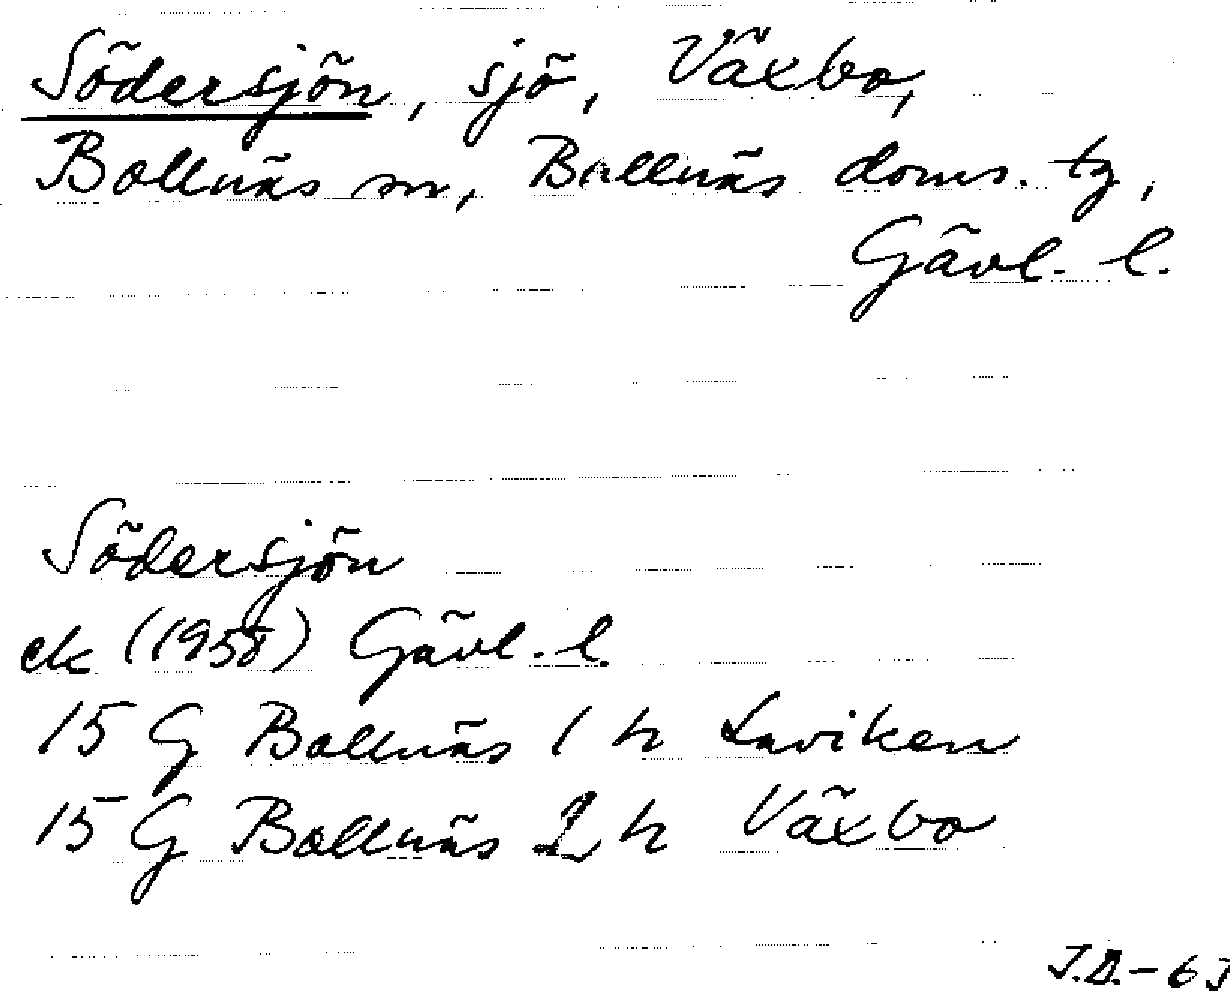 Södersjön, sjö, Växbo,
Bollnäs sn, Bollnäs doms. tg,
Gävl. l.
Södersjön
ek (1958) Gävl. l.
15 G Bollnäs 1 h Laviken
15 G Bollnäs 2 h Växbo
J.D.-63